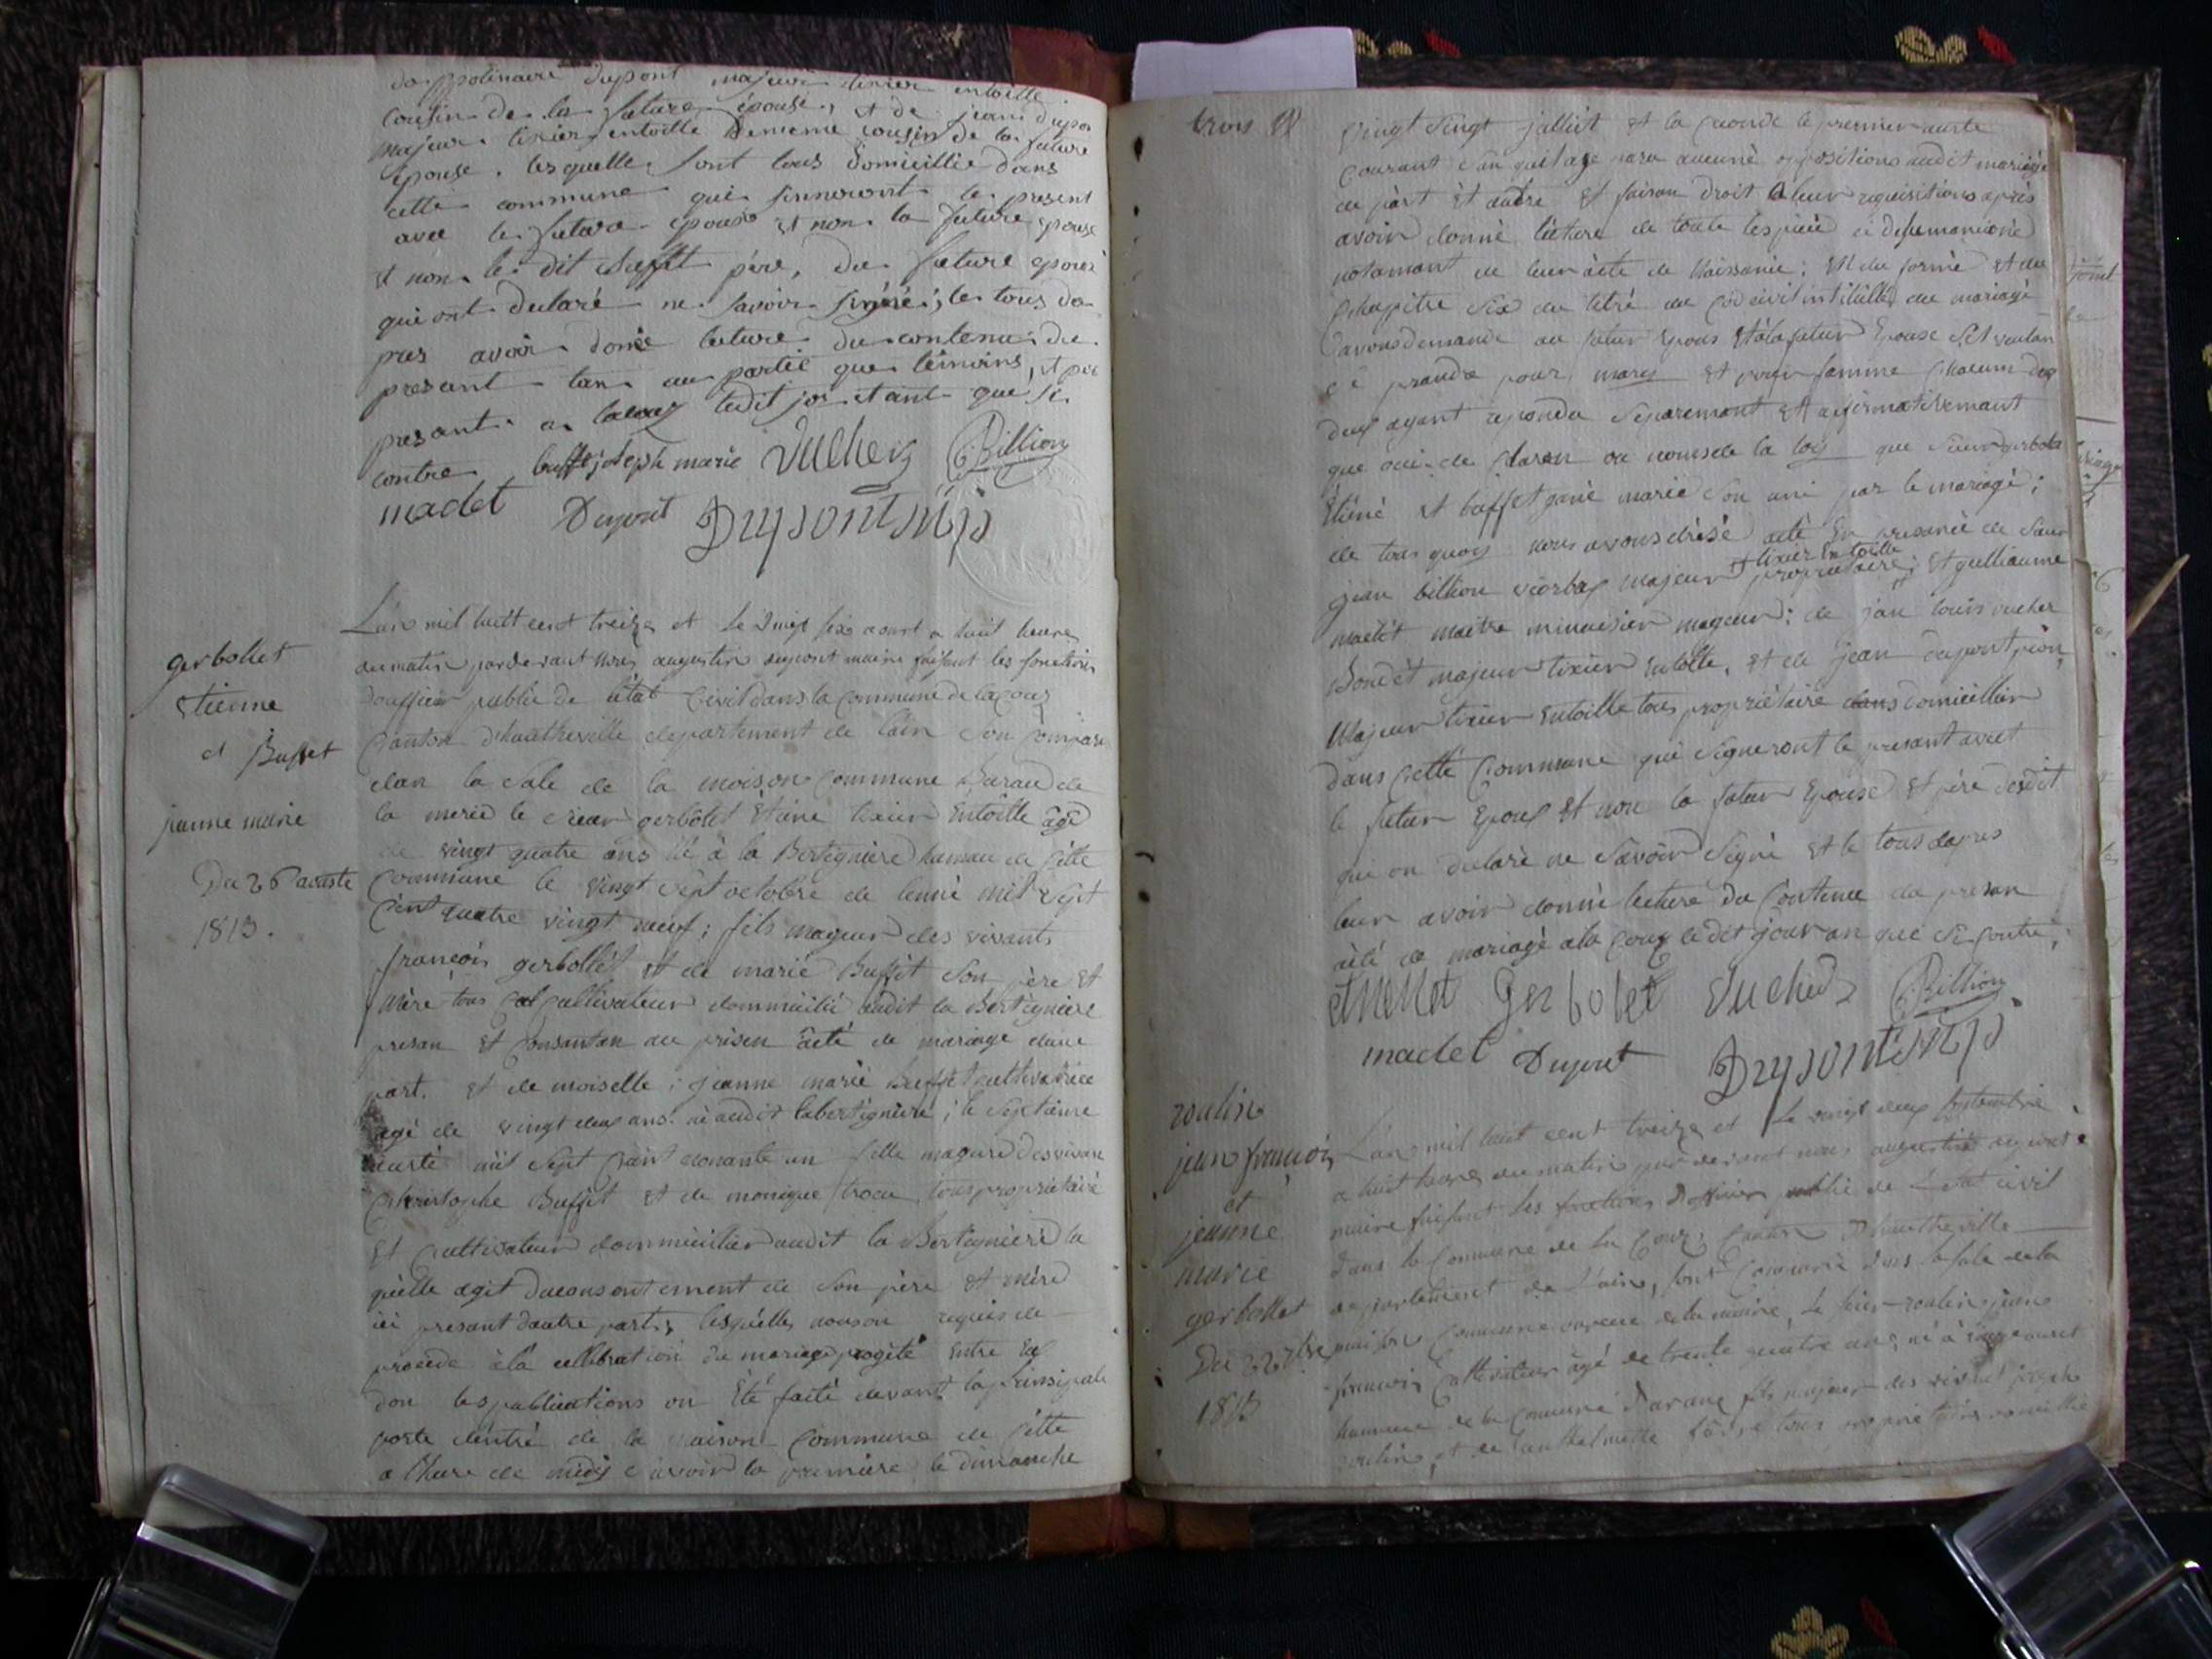 dapolinaire dupont majeur tixier entoille
cousin de la future épouse, et de jean dupon
majeur tixier entoille de meme cousin de la future
épouse. lesquelle sont tous domicillié dans
cette commune qui sinneront le present
avec le future epoux et non la future epouse
et non le dit Buffet père, du future epoux
qui ont declaré ne savoir siné; le tous da
pres avoir doné lecture du contenu du
present tan au partie que témoins, et par
presant a lacoux ledit jor et ant que si
contre buffet joseph marie Vucher Billion
madet Dupont Dupont
gerbollet
Etienne
et Buffet
jeanne marie
Du 26 aouste
1813.
L'an mil huit cent treize et le vingt six aoust a huit heures
du matin pardevant nous augustin dupont maire faisant les fonctions
douffisier publie de létat Civil dans la Commune de lacoux
Canton d'hauteville departement de lain son comparu
dan la sale de la moison Commune Buraud de
la merie le sieur gerbollet Etiene tixier Entoille âgé
de vingt quatre ans né à la Bertignière hamau de cette
Commune le vingt sept octobre de lenné mil sept
Cent quatre vingt neuf; fils mageur des vivants
françois gerbollet et de marie Buffet son père et
Mère tous cultivateur dommicillié audit la Bertignière
presan et Consantan au prisen âcté de mariage dune
part. et de moiselle; jeanne marie buffet cultivatrice
agé de vingt deux ans né audit labertignière; le septième
mil sept Cent nonante un fille mageure des vivan
Christophe Buffet et de monique trocu tous propriétaire
Et Cultivateur dommicillier audit la Bertignière la
quelle agit duconsentement de son père et mère
ici presant dautre part; lesquelles nouson requis de
procede à la cellebration du mariage progité entre eux
don les publications on été faite devant la prinsipale
porte dentré de la maison Commune de cette
a lheure de midy savoir la première le dimanche
trois
vingt juillit et la seconde le premier auste
courant san quil aye paru aucune oppositions audit mariage
de part et dautre et faison droit a leur requisitions après
avoir donné lecture de toute les pièce ci desu mansioné
notamant de leur acte de Naissance; et du
Chapitre six du titre du Code civil intitullé du mariage
avons demande au futur Epous et àla futur Epouse sil voulan
se prandre pour mary et pour famme Chacum des
deux ayant repondu séparemant et affirmativemant
que oui de claron au nom de la loy que sieur gerbolet
Etiené et buffet jane marie son uni par le mariage;
de tous quoy nous avons drésé acte en presance de sieur
jean billion majeur et tixier En toille propriétaire; et gulliaume
madet maitre menuisier mageur; de jan louis vucher
Bondet majeur tixier entoille, et de jean dupont pion
Majeur tixier Entoille tous propriétaire domicillier
dans cette Commune qui signeront le presant avect
le futur Epoux et non la futur Epouse et père dudit
qui on declaré ne savoir signé et le tous dapres
leur avoir donné lecture du Contenu du presan
acté de mariage ala Coux ledit jour an que si contre;
Gerbolet Vucher Billion
madet Dupont Dupont
roulin
jean françois
et
jeanne
marie
gerbollet
Du 22 7bre
1813
L'an mil huit cent treize et le vingt deux septembre
a huit heures du matin par devant nous augustin dupont
maire faisant les fonctions d'offisier publie de l'etat civil
dans la Commune de la Coux, Canton d'hauteville
departement de l'ain, sont Comparu dans la sale de la
maison Commune bureau de la mairie, le sieur roulin jean
françois Cultivateur âgé de trente quatre ans, né à
hameau de la Commune d'aranc fils majeur des vivant joseph
roulin, et de tous proprietaire